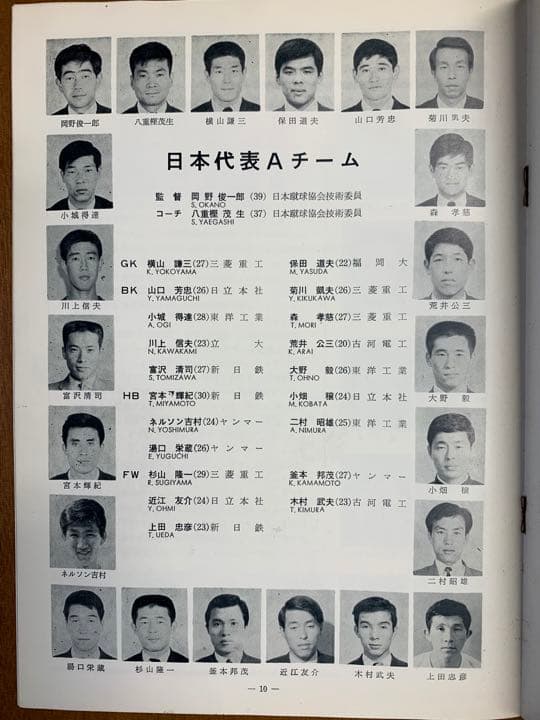 岡野俊一郎 八重樫茂生 横山謙三 保田道夫 山口芳忠 菊川凱夫
日本代表Aチーム
監督 岡野俊一郎(39)日本蹴球協会技術委員
S, OKANO
コーチ 八重樫茂生(37)日本蹴球協会技術委員
S, YAEGASHI
小城得達 森 孝慈
GK 横山 謙三(27)三菱重工 保田 道夫(22)福岡大
K, YOKOYAMA M, YASUDA
BK 山口 芳忠(26)日立本社 菊川 凱夫(26)三菱重工
Y, YAMAGUCHI Y, KIKUKAWA
川上信夫 荒井公三
小城 得達(28)東洋工業 森 孝慈(27)三菱重工
A, OGI T, MORI
川上 信夫(23)立大 荒井 公三(20)古河電工
N, KAWAKAMI K, ARAI
富沢 清司(27)新日鉄 大野 毅(26)東洋工業
S, TOMIZAWA T, OHNO
富沢清司 大野 毅
HB 宮本 輝紀(30)新日鉄 小畑 穣(24)日立本社
T, MIYAMOTO M, KOBATA
ネルソン吉村(24)ヤンマー 二村 昭雄(25)東洋工業
N, YOSHIMURA A, NIMURA
湯口 栄蔵(26)ヤンマー
E, YUGUCHI
宮本輝紀 小畑 穣
FW 杉山 隆一(29)三菱重工 釜本 邦茂(27)ヤンマー
R, SUGIYAMA K, KAMAMOTO
近江 友介(24)日立本社 木村 武夫(23)古河電工
Y, OHMI T, KIMURA
上田 忠彦(23)新日鉄
T, UEDA
ネルソン吉村 二村昭雄
湯口栄蔵 杉山隆一 釜本邦茂 近江友介 木村武夫 上田忠彦
— 10 —